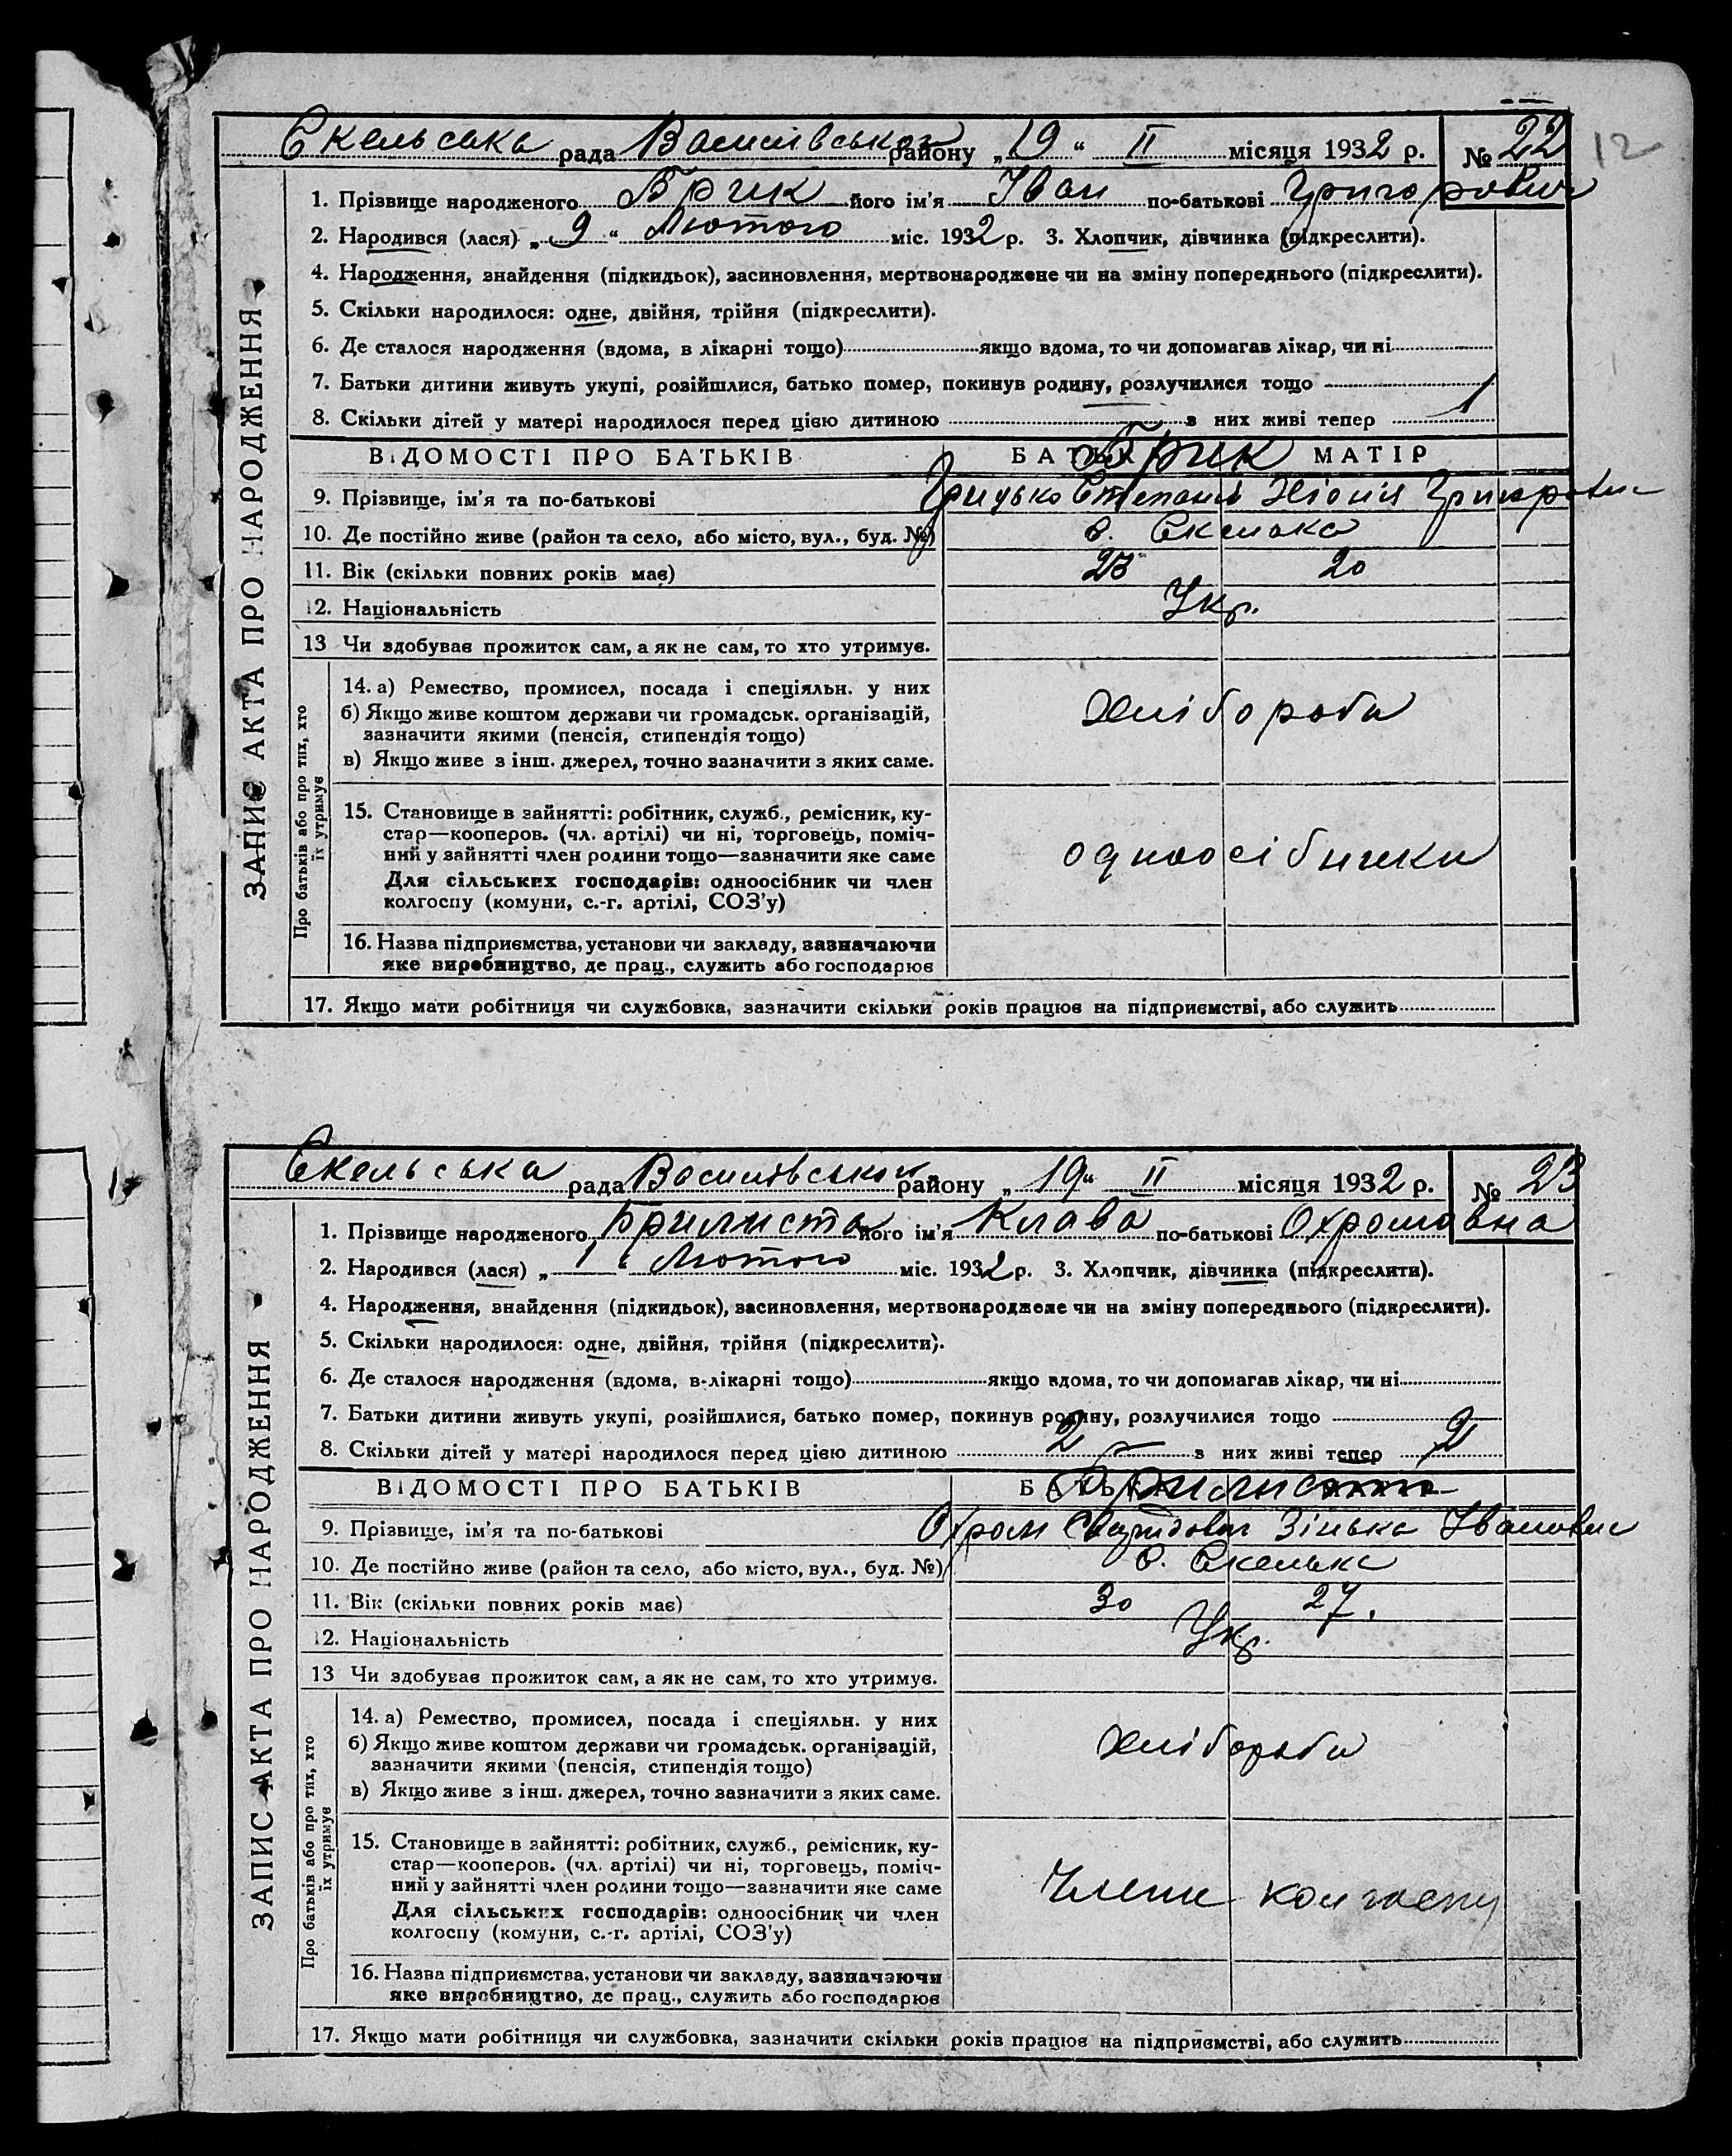 12
Скельська рада Василівськог району „19“ II місяця 1932 р. № 22
ЗАПИС АКТА ПРО НАРОДЖЕННЯ
1. Прізвище народженого Брик його ім'я Іван по-батькові Григорович
2. Народився (лася) „9“ Лютого міс. 1932 р. 3. Хлопчик, дівчинка (підкреслити).
4. Народження, знайдення (підкидьок), засиновлення, мертвонароджене чи на зміну попереднього (підкреслити).
5. Скільки народилося: одне, двійня, трійня (підкреслити).
6. Де сталося народження (вдома, в лікарні тощо) якщо вдома, то чи допомагав лікар, чи ні
7. Батьки дитини живуть укупі, розійшлися, батько помер, покинув родину, розлучилися тощо
8. Скільки дітей у матері народилося перед цією дитиною з них живі тепер 1
ВІДОМОСТІ ПРО БАТЬКІВ БАТЬКО Брик МАТІР
9. Прізвище, ім'я та по-батькові Грицько Степанов Хіония Григоровна
10. Де постійно живе (район та село, або місто, вул., буд. №) с. Скелька
11. Вік (скільки повних років має) 23 20
12. Національність Укр.
13 Чи здобуває прожиток сам, а як не сам, то хто утримує.
Про батьків або про тих, хто
їх утримує
14. а) Ремество, промисел, посада і спеціяльн. у них
б) Якщо живе коштом держави чи громадськ. організацій,
зазначити якими (пенсія, стипендія тощо)
в) Якщо живе з інш. джерел, точно зазначити з яких саме.
хлібороби
15. Становище в зайнятті: робітник, служб., ремісник, ку-
стар—кооперов. (чл. артілі) чи ні, торговець, поміч-
ний у зайнятті член родини тощо—зазначити яке саме
Для сільських господарів: одноосібник чи член
колгоспу (комуни, с.-г. артілі, СОЗ'у)
одноосібники
16. Назва підприємства, установи чи закладу, зазначаючи
яке виробництво, де прац., служить або господарює
17. Якщо мати робітниця чи службовка, зазначити скільки років працює на підприємстві, або служить
Скельська рада Василівської району „19“ II місяця 1932 р. № 23
ЗАПИС АКТА ПРО НАРОДЖЕННЯ
1. Прізвище народженого Брилиста його ім'я Клава по-батькові Охромовна
2. Народився (лася) „1“ Лютого міс. 1932 р. 3. Хлопчик, дівчинка (підкреслити).
4. Народження, знайдення (підкидьок), засиновлення, мертвонароджене чи на зміну попереднього (підкреслити).
5. Скільки народилося: одне, двійня, трійня (підкреслити).
6. Де сталося народження (вдома, в лікарні тощо) якщо вдома, то чи допомагав лікар, чи ні
7. Батьки дитини живуть укупі, розійшлися, батько помер, покинув родину, розлучилися тощо
8. Скільки дітей у матері народилося перед цією дитиною 2 з них живі тепер 2
ВІДОМОСТІ ПРО БАТЬКІВ
9. Прізвище, ім'я та по-батькові Охрам Зінька Івановна
10. Де постійно живе (район та село, або місто, вул., буд. №) с. Скелька
11. Вік (скільки повних років має) 30 27.
12. Національність Укр.
13 Чи здобуває прожиток сам, а як не сам, то хто утримує.
Про батьків або про тих, хто
їх утримує
14. а) Ремество, промисел, посада і спеціяльн. у них
б) Якщо живе коштом держави чи громадськ. організацій,
зазначити якими (пенсія, стипендія тощо)
в) Якщо живе з інш. джерел, точно зазначити з яких саме.
хлібороби
15. Становище в зайнятті: робітник, служб., ремісник, ку-
стар—кооперов. (чл. артілі) чи ні, торговець, поміч-
ний у зайнятті член родини тощо—зазначити яке саме
Для сільських господарів: одноосібник чи член
колгоспу (комуни, с.-г. артілі, СОЗ'у)
Члени колгоспу
16. Назва підприємства, установи чи закладу, зазначаючи
яке виробництво, де прац., служить або господарює
17. Якщо мати робітниця чи службовка, зазначити скільки років працює на підприємстві, або служить